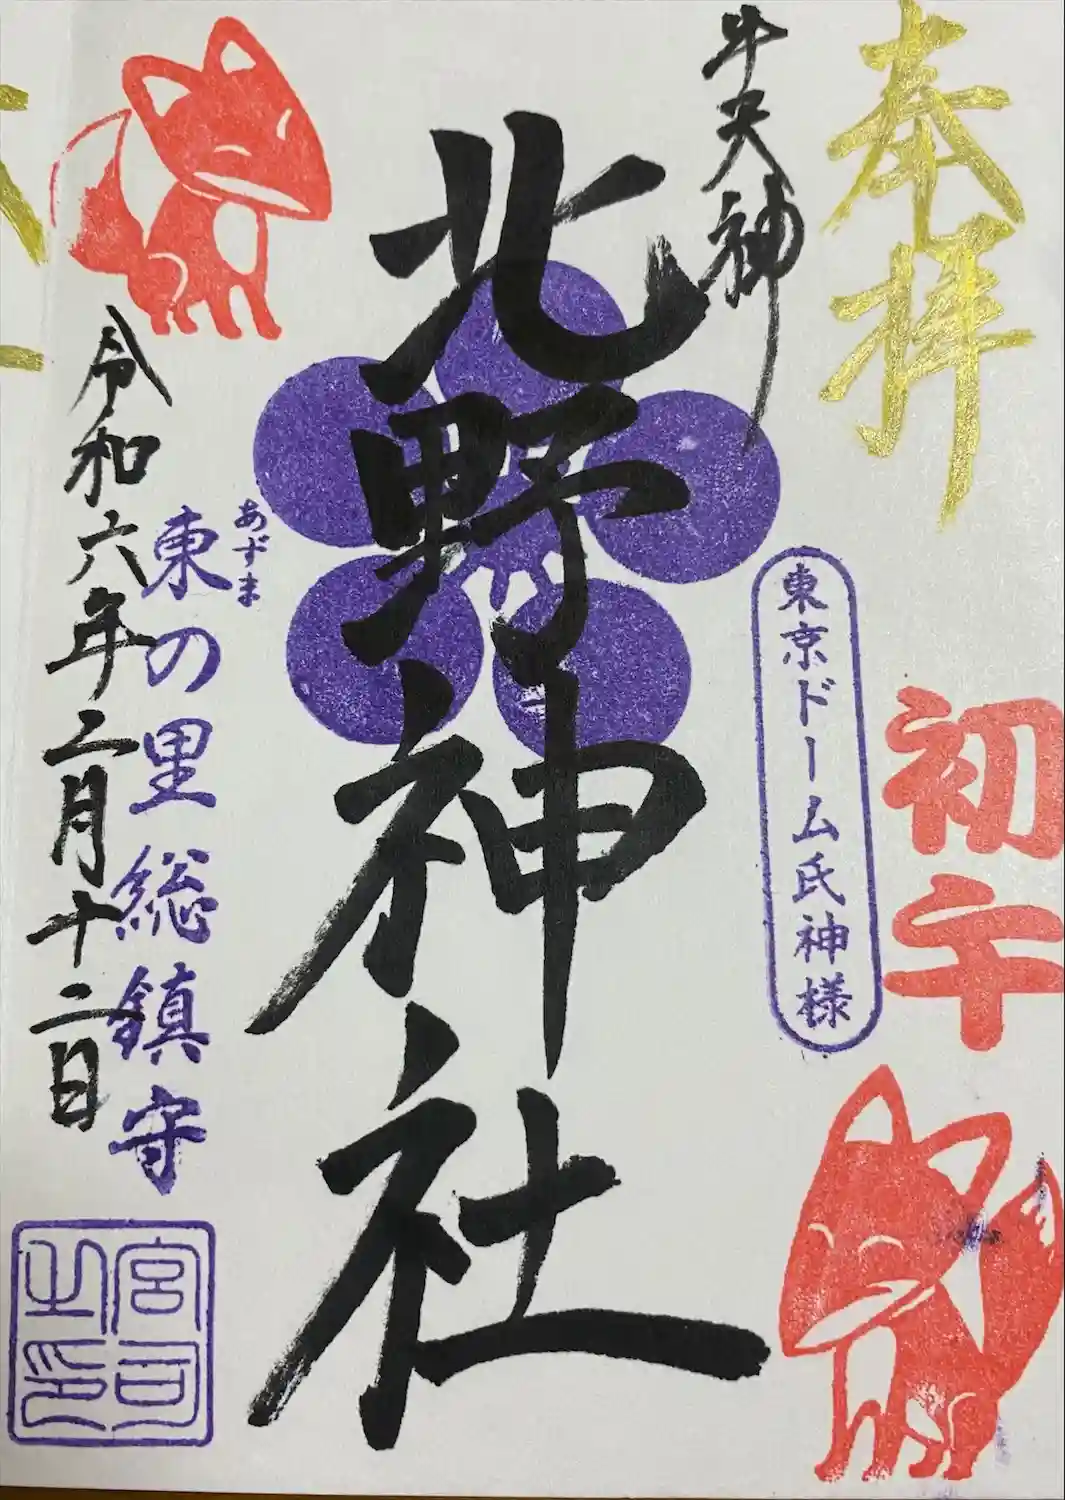 奉拝
初午
牛天神
東京ドーム氏神様
北野神社
あずま
東の里総鎮守
令和六年二月十二日
宮司
之印